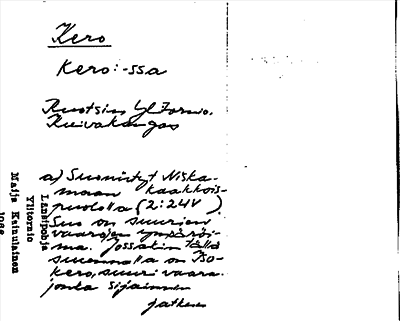 Kero
Kero: -ssa
Ruotsin Yl Tornio.
Kuivakangas
a) Suomistyt Niska-
maan kaakkois-
puolella (2:24V).
Suo on suurien
vaarojen ympäröi-
mä. Jossakin tällä
suunnalla on Iso-
kero, suuri vaara.
jonka sijainnin
jatkuu
Länsipohja
Ylitornio
Maija Kainulainen